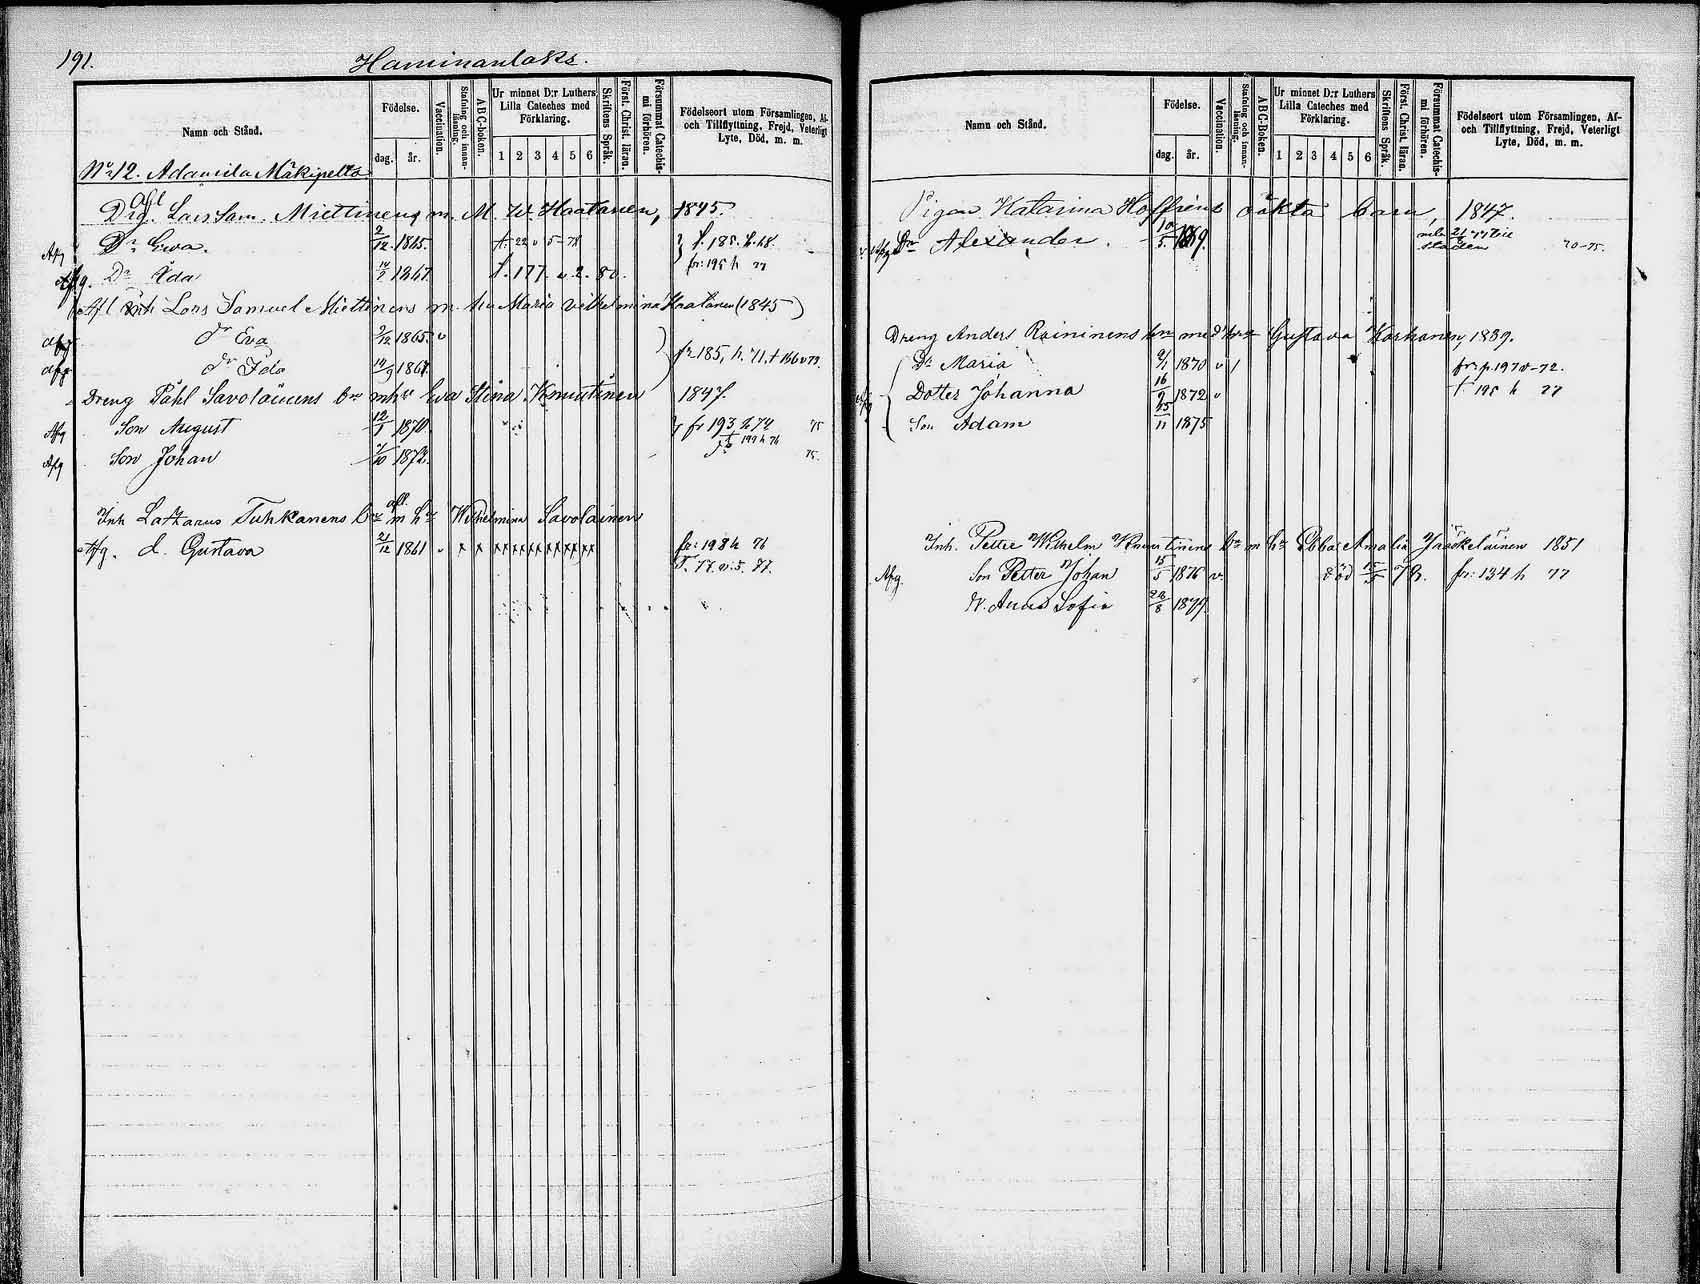 191.
Haminanlaks.
Namn och Stånd.
Födelse.
dag.
år.
Vaccination.
Stafning och innan-läsning.
A B C-boken.
Ur minnet D:r Luthers Lilla Cateches med Förklaring.
1 2 3 4 5 6
Skriftens Språk.
Först. Christ. läran.
Försummat Catechis-mi förhören.
Födelseort utom Församlingen, Af- och Tillflyttning, Frejd, Veterligt Lyte, Död, m. m.
No 12. Adamila Mäkipelto
afl
Drg. Lars Sam. Miettinens m. M. W. Haatanen, 1845.
Afg Dr Ewa. 2/12 1865. f. 185. h. 68.
Afg. Dr Ada 1867. f. 177. v. 2. 80. fr: 195 h 77
Afl Inh Lars Samuel Miettinens m. hu Maria Vilhelmina Haatanen (1845)
Afg dr Eva 2/12 1865. v
Afg dr Ida 14/9 1867. fr 185, h. 71. t 186 v 73.
Dreng Påhl Savolainens bn m hu Eva Stina Knuutinen 1847.
Afg Son August 12/1 1870. fr 193 h 74 75
t 199 h 76
Afg Son Johan 1872. 75.
Inh Latsarus Tuhkanens bn m afl hu Wilhelmina Savolainen
Afg. d. Gustava 21/12 1861 v x x xx xx xx xx xx xx fr: 198 h 76
T. 77. v. 5. 77.
Namn och Stånd.
Födelse.
dag.
år.
Vaccination.
Stafning och innan-läsning.
A B C-Boken.
Ur minnet D:r Luthers Lilla Cateches med Förklaring.
1 2 3 4 5 6
Skriftens Språk.
Först. Christ. läran.
Försummat Catechis-mi förhören.
Födelseort utom Församlingen, Af- och Tillflyttning, Frejd, Veterligt Lyte, Död, m. m.
Pigan Katarina Hoffréns oäkta barn, 1847.
Afg Dr Alexander. 10/5 1869. till staden 70-75.
Dreng Anders Raininens bn med hu Gustava Korhonen, 1839.
Dr Maria 9/1 1870 v / fr: p. 197 v-72.
Dotter Johanna 16/9 1872 v t 195 h 77
Son Adam 25/11 1875
Inh. Petter Wilhelm Knuutinens bn m hu Ebba Amalia Jääskeläinen 1851
Afg. Son Petter Johan 15/5 1876 v. död 15/5 78. fr: 134 h 77
D. Anna Sofia 28/8 1879.